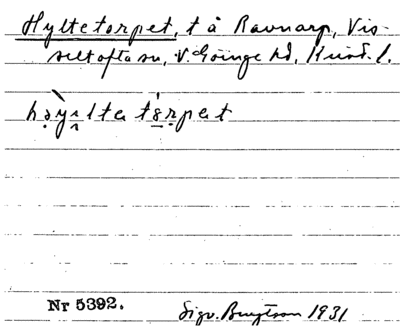 Hyltetorpet, t å Ravnarp, Vis-
seltofta sn, V. Göinge hd, Krist. l.
hə̀yi̭lta tó̱rpət
Nr 5392.
Sigv. 1931